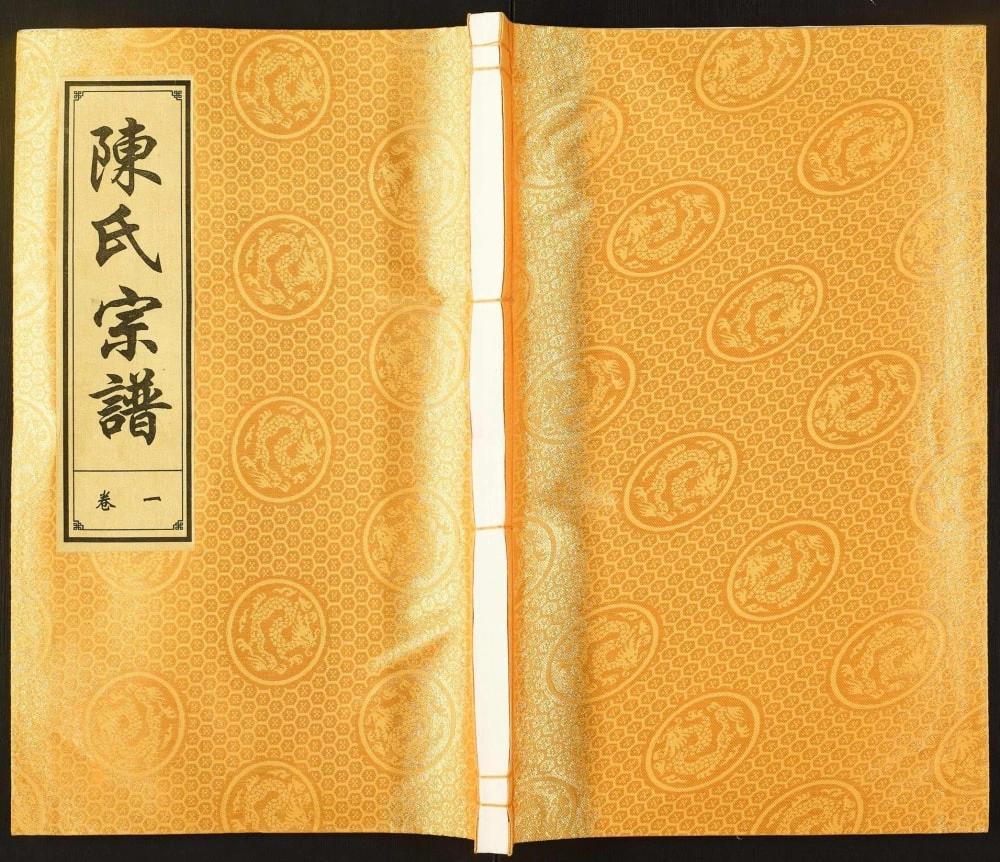 陳氏宗譜
卷一